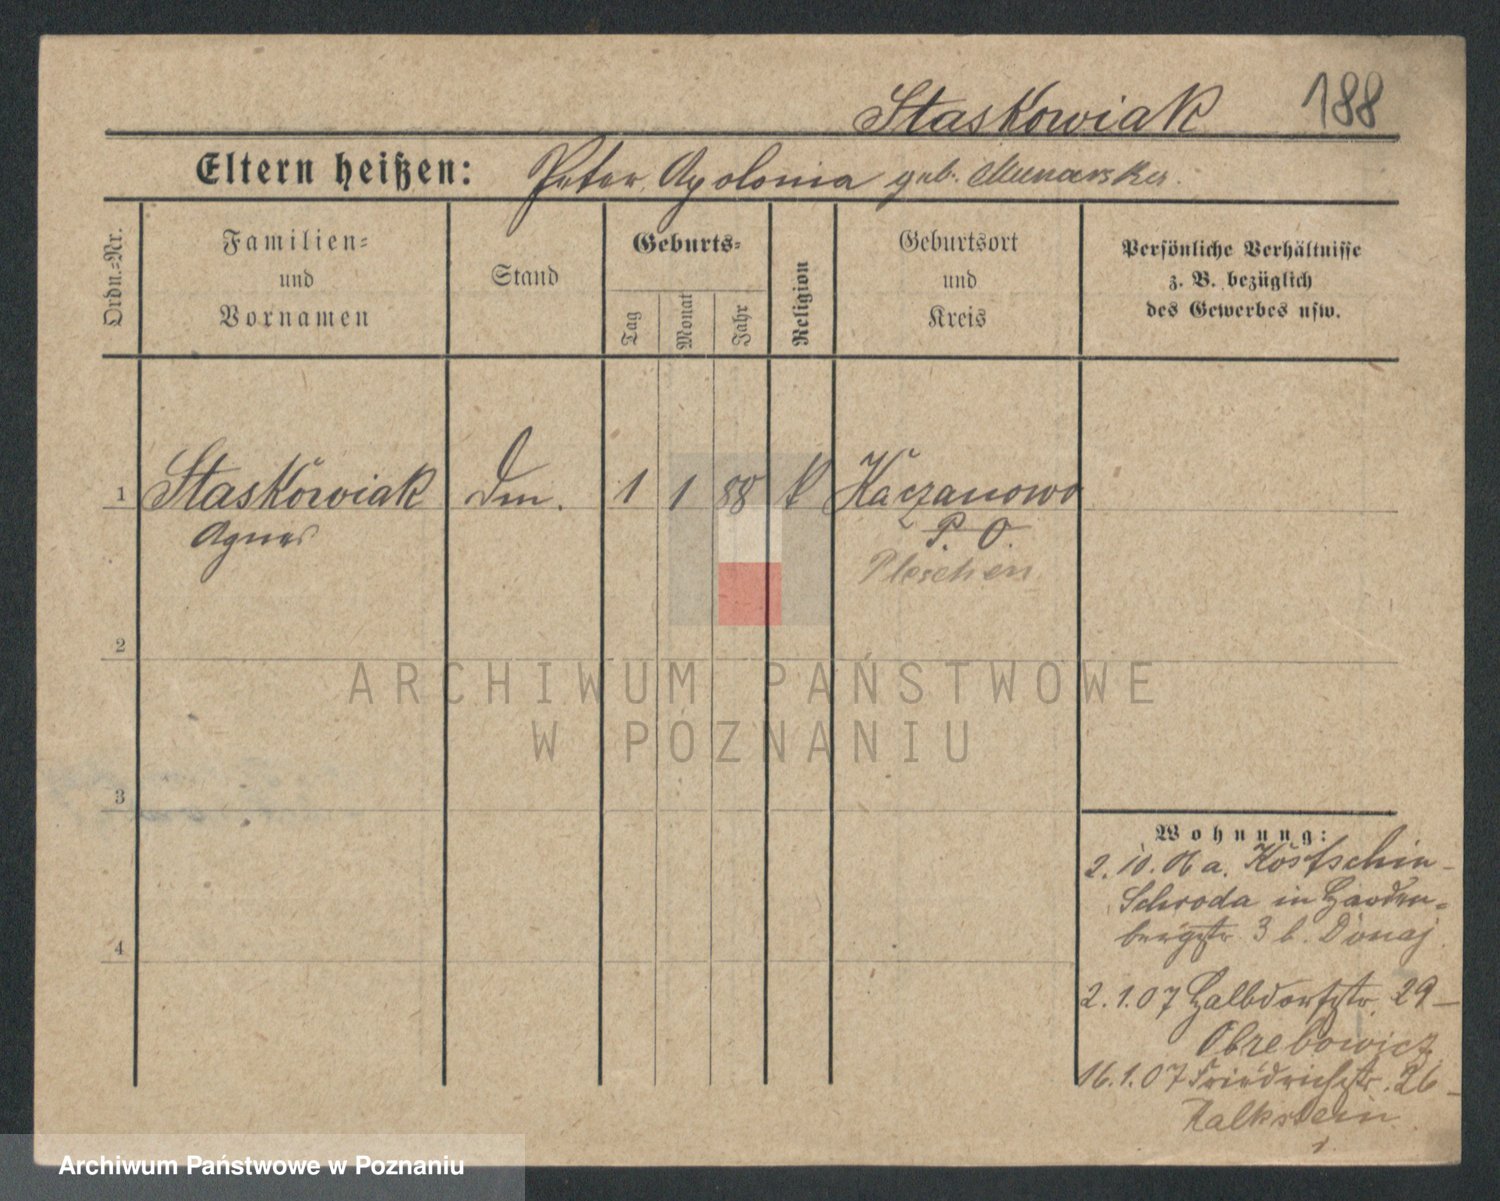 Staskowiak 188
Eltern heißen: Peter, Apolonia geb.
Ordn.-Nr.
Familien-
und
Vornamen
Stand
Geburts-
Tag
Monat
Jahr
Religion
Geburtsort
und
Kreis
Persönliche Verhältnisse
z. B. bezüglich
des Gewerbes usw.
1 Staskowiak Dm. 1 1 88 k Kaczanowo
Agnes P. O.
Pleschen
2
ARCHIWUM PAŃSTWOWE
W POZNANIU
3
Wohnung:
2.10.06 a. Kostschin-
Schroda in Harden-
bergstr 3 b. Donaj.
4
2.1.07 Halbdorfstr. 29-
Obrebowicz
16.1.07 Friedrichstr. 26-
Kalkstein
Archiwum Państwowe w Poznaniu